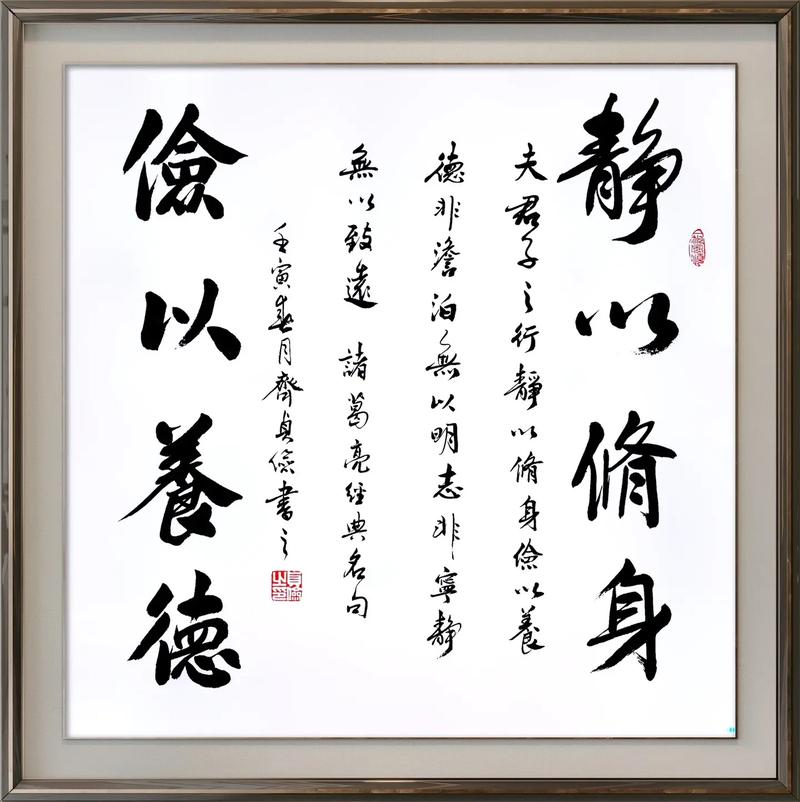 静以脩身
夫君子之行静以脩身儉以養
德非澹泊無以明志非寧静
無以致遠 諸葛亮經典名句
壬寅春月齊貞儉書之
儉以養德